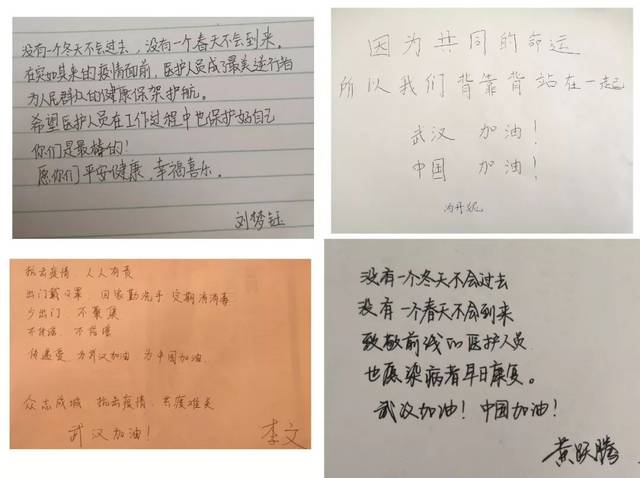 没有一个冬天不会过去，没有一个春天不会到来。
在突如其来的疫情面前，医护人员成了最美逆行者
为人民群众的健康保驾护航。
希望医护人员在工作过程中也保护好自己
你们是最棒的！
愿你们平安健康，幸福喜乐。
刘梦钰
因为共同的命运
所以我们背靠背站在一起
武汉 加油！
中国 加油！
抗击疫情，人人有责
出门戴口罩 回家勤洗手 定期消消毒
少出门 不聚集
不信谣 不传谣
传递爱 为武汉加油 为中国加油
众志成城 抗击疫情 共度难关
武汉加油！
李文
没有一个冬天不会过去
没有一个春天不会到来
致敬前线的医护人员
也愿染病者早日康复。
武汉加油！中国加油！
黄跃腾